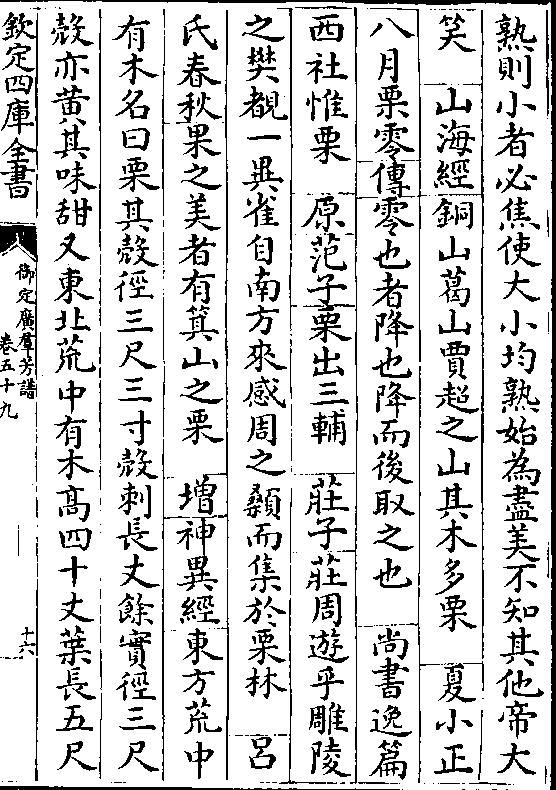 熟則小者必焦使大小均熟始為盡美不知其他帝大
笑　山海經銅山葛山賈超之山其木多栗　夏小正
八月栗零傳零也者降也降而後取之也　尚書逸篇
西社惟栗　原范子栗出三輔　莊子莊周遊乎雕陵
之樊覩一異雀自南方來感周之顙而集於栗林　呂
氏春秋果之美者有箕山之栗　增神異經東方荒中
有木名曰栗其殼徑三尺三寸殼刺長丈餘實徑三尺
殼亦黃其味甜又東北荒中有木高四十丈葉長五尺
欽定四庫全書
御定廣羣芳譜
卷五十九
十六